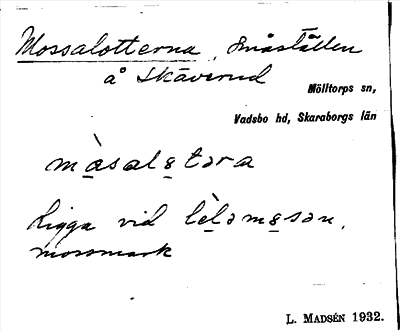 Mossalotterna, småställen
å Skäverud
Mölltorps sn,
Vadsbo hd, Skaraborgs län
màsalɵtəra
Ligga vid lèləmɵsən,
mossmark
L. MADSÉN 1932.